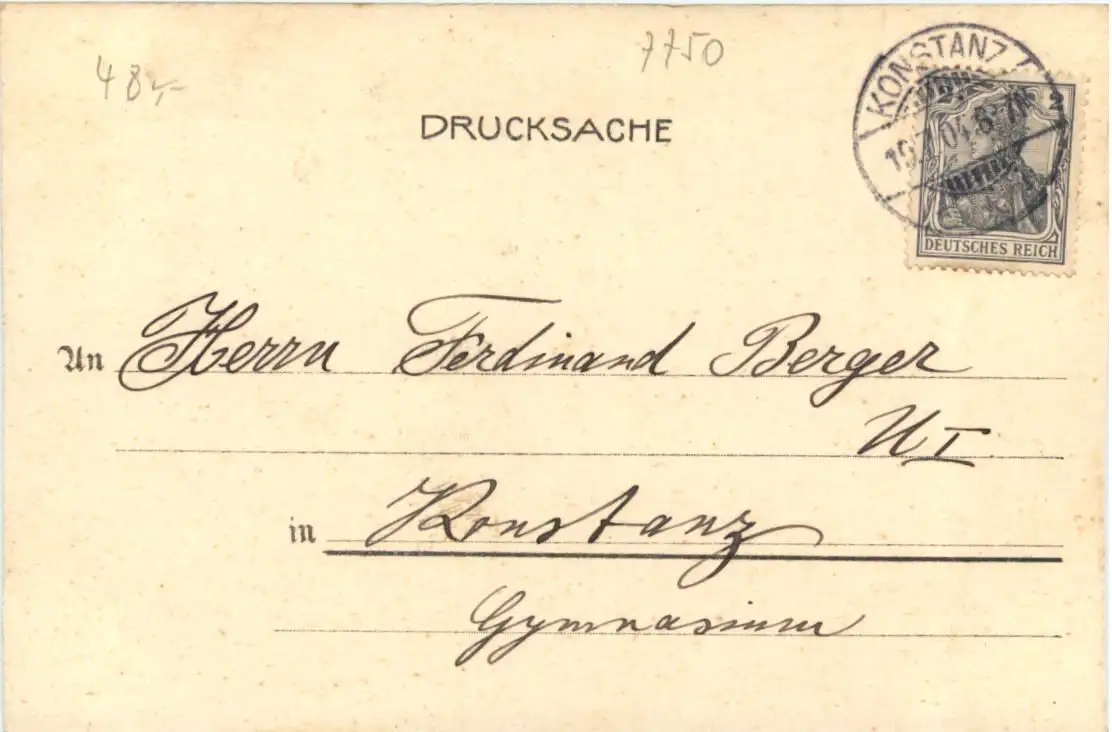 48,-
7750
DRUCKSACHE
KONSTANZ
2
DEUTSCHES REICH
An Herrn Ferdinand Berger
U I
in Konstanz
Gymnasium